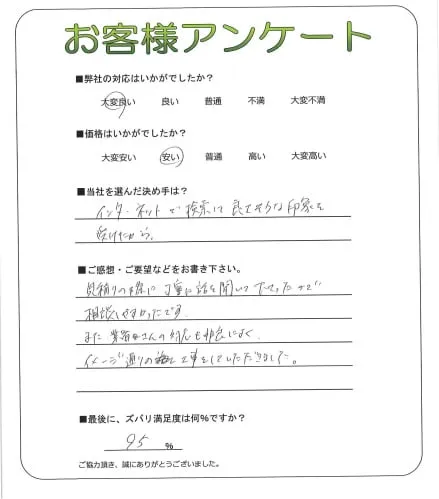 お客様アンケート
■弊社の対応はいかがでしたか?
大変良い 良い 普通 不満 大変不満
■価格はいかがでしたか?
大変安い 安い 普通 高い 大変高い
■当社を選んだ決め手は?
インターネットで検索して良さそうな印象を
受けたから。
■ご感想・ご要望などをお書き下さい。
見積りの際に丁寧に話を聞いて下さったので
相談しやすかったです
また業者さんの対応も非常によく、
イメージ通りの 工事をしていただきました。
■最後に、ズバリ満足度は何%ですか?
95 %
ご協力頂き、誠にありがとうございました。